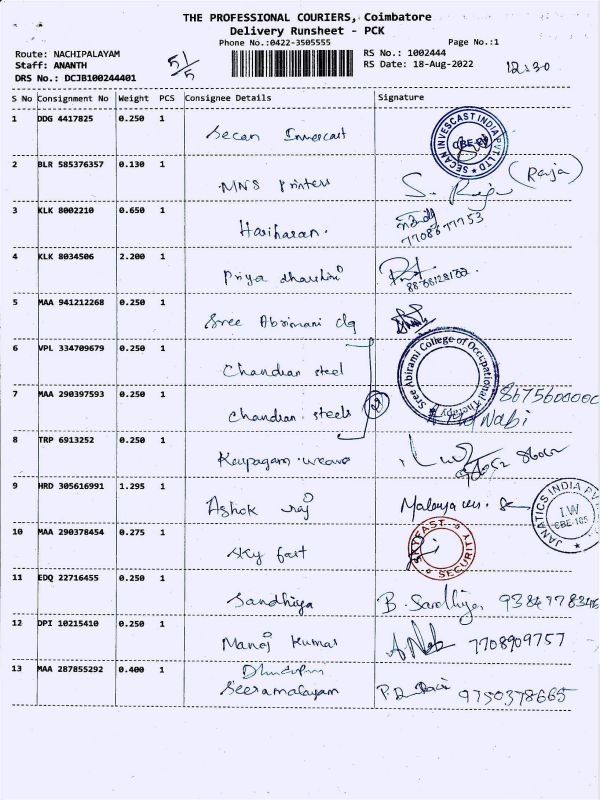 THE PROFESSIONAL COURIERS, Coimbatore
Delivery Runsheet - PCK
Phone No.:0422-3505555
Page No.:1
Route: NACHIPALAYAM
Staff: ANANTH
DRS No.: DCJB100244401
51/5
RS No.: 1002444
RS Date: 18-Aug-2022
12:30
S No Consignment No Weight PCS Consignee Details Signature
1 DDG 4417825 0.250 1 Secan Invescast
SECAN INVESCAST INDIA PVT LTD
2 BLR 585376357 0.130 1 MNS Printers S. Raja (Raja)
3 KLK 8002210 0.650 1 Hariharan.
4 KLK 8034506 2.200 1 Priya dharshini
5 MAA 941212268 0.250 1 Sree Abirami clg
6 VPL 334709679 0.250 1 Chandran steel
Sree Abirami College of Occupational Therapy
7 MAA 290397593 0.250 1 Chandran steels
8 TRP 6913252 0.250 1 Karpagam
9 HRD 305616991 1.295 1 Ashok raj
JANATICS INDIA
I.W
CBE-105
10 MAA 290378454 0.275 1 Sky fast
SKYFAST SECURITY
11 EDQ 22716455 0.250 1 Sandhiya B. Sandhiya
12 DPI 10215410 0.250 1 Manoj Kumar 7708909757
13 MAA 287855292 0.400 1
Seeramalayam 9750378665